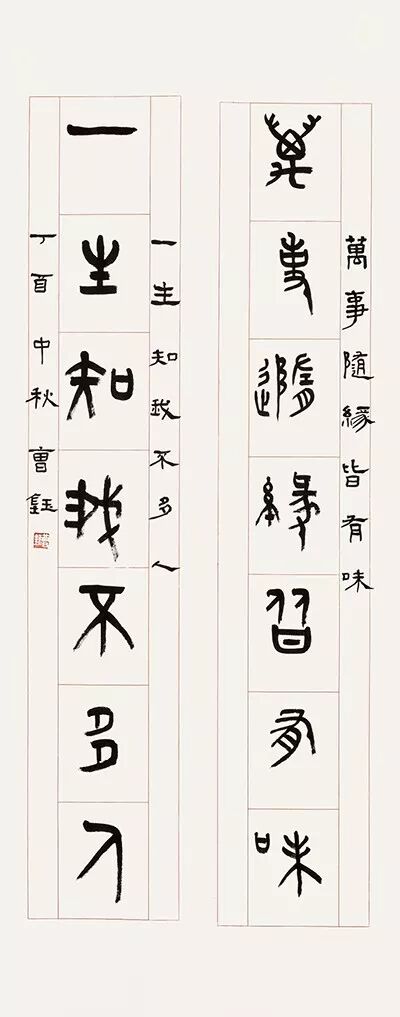 萬事隨緣皆有味
萬事隨緣皆有味
一生知我不多人
一生知我不多人
丁酉 中秋 曹鈺